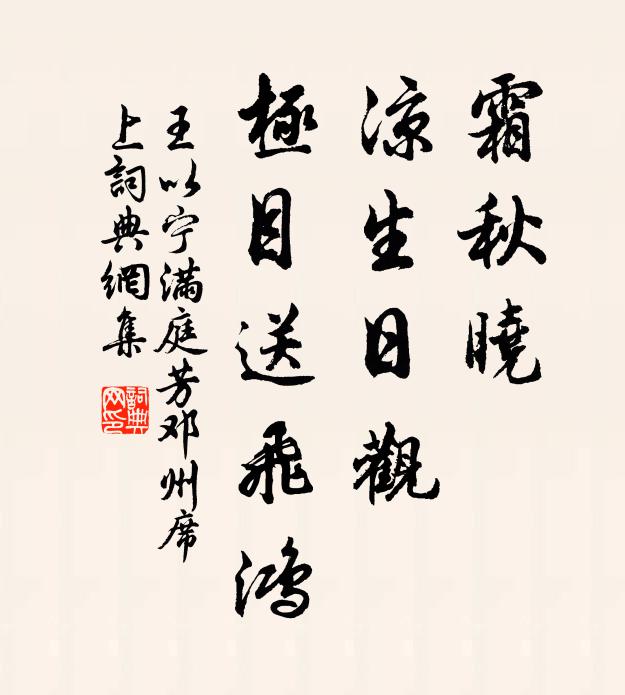 霜秋曉
凉生日觀
極目送飛鴻
王以宁滿庭芳邓州席
上詞典網集
詞典
网印